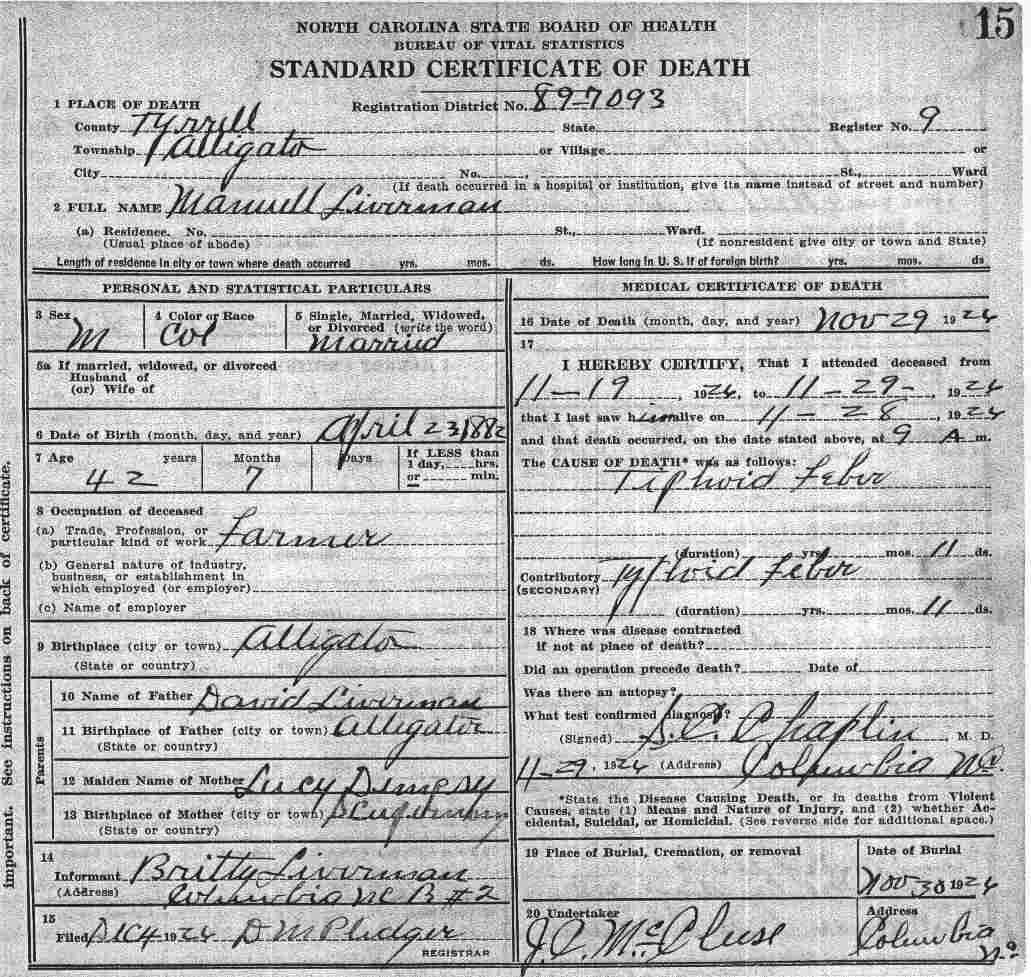 15
NORTH CAROLINA STATE BOARD OF HEALTH
BUREAU OF VITAL STATISTICS
STANDARD CERTIFICATE OF DEATH
1 PLACE OF DEATH Registration District No. 89-7093
County Tyrrell State Register No. 9
Township Alligator or Village or
City No. , St., Ward
(If death occurred in a hospital or institution, give its name instead of street and number)
2 FULL NAME Manuell Liverman
(a) Residence. No. St., Ward.
(Usual place of abode) (If nonresident give city or town and State)
Length of residence in city or town where death occurred yrs. mos. ds. How long in U. S. if of foreign birth? yrs. mos. ds
PERSONAL AND STATISTICAL PARTICULARS
3 Sex 4 Color or Race 5 Single, Married, Widowed,
or Divorced (write the word)
M Col Married
5a If married, widowed, or divorced
Husband of
(or) Wife of
6 Date of Birth (month, day, and year) April 23 1882
7 Age years Months Days If LESS than
1 day, hrs.
or min.
42 7
8 Occupation of deceased
(a) Trade, Profession, or
particular kind of work Farmer
(b) General nature of industry,
business, or establishment in
which employed (or employer)
(c) Name of employer
9 Birthplace (city or town) Alligator
(State or country)
Parents
10 Name of Father David Liverman
11 Birthplace of Father (city or town) Alligator
(State or country)
12 Maiden Name of Mother Lucy
13 Birthplace of Mother (city or town)
(State or country)
14
Informant Britty Liverman
(Address) Columbia NC R #2
15
Filed Dec 4 1924 D M Pledger
REGISTRAR
MEDICAL CERTIFICATE OF DEATH
16 Date of Death (month, day, and year) Nov 29 1924
17
I HEREBY CERTIFY, That I attended deceased from
11-19, 1924, to 11-29-, 1924
that I last saw him alive on 11-28, 1924
and that death occurred, on the date stated above, at 9 A m.
The CAUSE OF DEATH* was as follows:
Tiphoid Febor
(duration) yrs. mos. 11 ds.
Contributory Typhoid Febor
(SECONDARY)
(duration) yrs. mos. 11 ds.
18 Where was disease contracted
if not at place of death?
Did an operation precede death? Date of
Was there an autopsy?
What test confirmed diagnosis?
(Signed) S.C. Chaplin, M. D.
11-29, 1924 (Address) Columbia N.C.
*State the Disease Causing Death, or in deaths from Violent
Causes, state (1) Means and Nature of Injury, and (2) whether Ac-
cidental, Suicidal, or Homicidal. (See reverse side for additional space.)
19 Place of Burial, Cremation, or removal Date of Burial
Nov. 30 1924
20 Undertaker Address
J.C. McCluse Columbia
N.C.
important. See instructions on back of certificate.